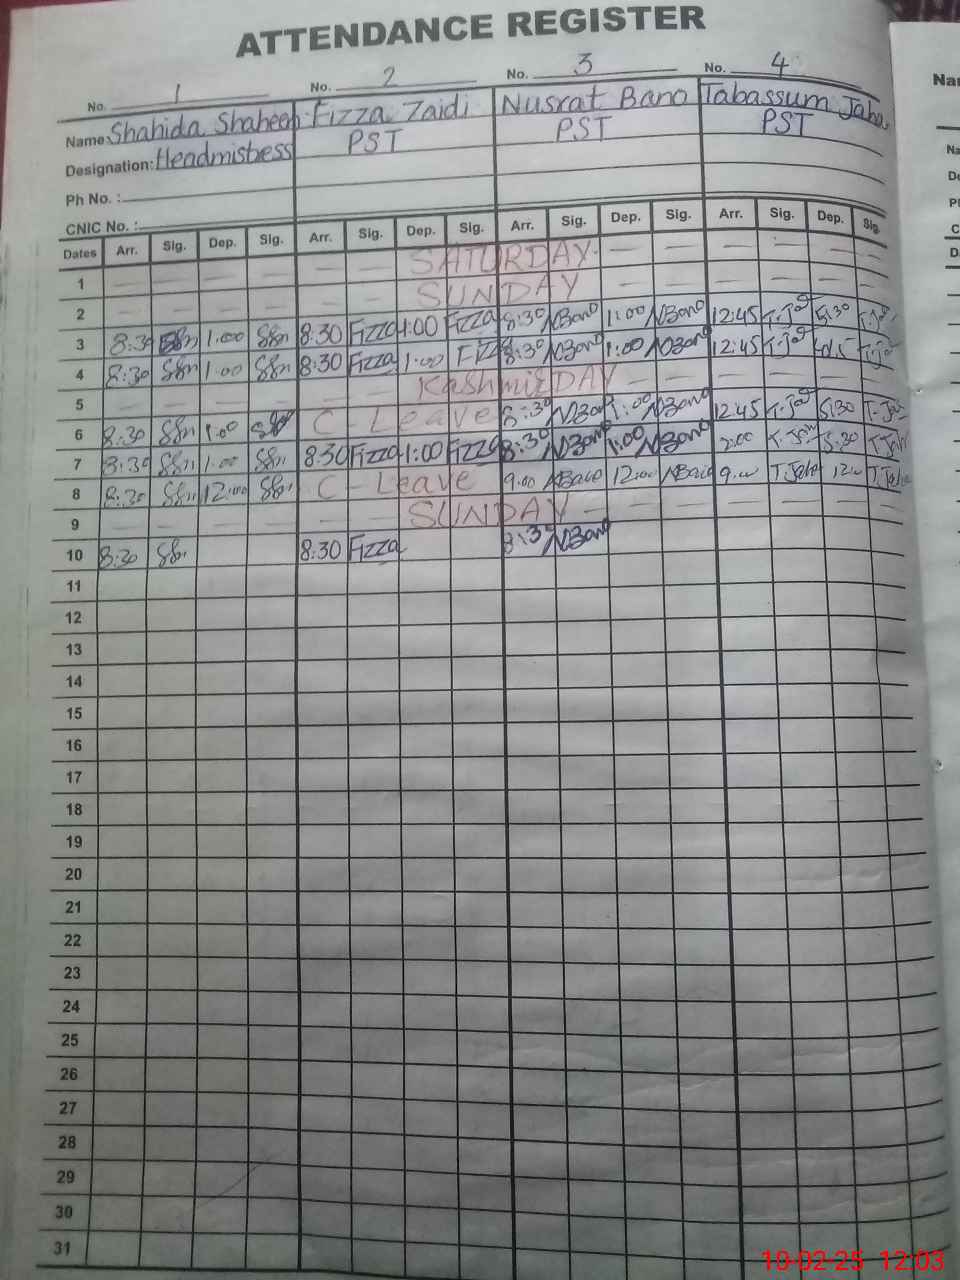 ATTENDANCE REGISTER
No. 1 No. 2 No. 3 No. 4
Name: Shahida Shaheen Fizza Zaidi Nusrat Bano Tabassum Jaha
Designation: Headmistress PST PST PST
Ph No. :
CNIC No. :
Dates Arr. Sig. Dep. Sig. Arr. Sig. Dep. Sig. Arr. Sig. Dep. Sig. Arr. Sig. Dep. Sig.
1 SATURDAY
2 SUNDAY
3 8:30 1:00 8:30 Fizza 1:00 Fizza 8:30 NBano 1:00 NBano 12:45 T.Jah 5:30 T.Jah
4 8:30 1:00 8:30 Fizza 1:00 Fizza 8:30 NBano 1:00 NBano 12:45 T.Jah T.Jah
5 Kashmir DAY
6 8:30 1:00 C - Leave 8:30 NBano 1:00 NBano 12:45 T.Jah 5:30 T.Jah
7 8:30 1:00 8:30 Fizza 1:00 Fizza 8:30 NBano 1:00 NBano 2:00 T.Jah 5:30 T.Jah
8 8:30 12:00 C - Leave 9:00 NBano 12:00 NBano 9:00 T.Jaha 12:00 T.Jaha
9 SUNDAY
10 8:30 8:30 Fizza 8:3 NBano
11
12
13
14
15
16
17
18
19
20
21
22
23
24
25
26
27
28
29
30
31
10-02-25 12:03